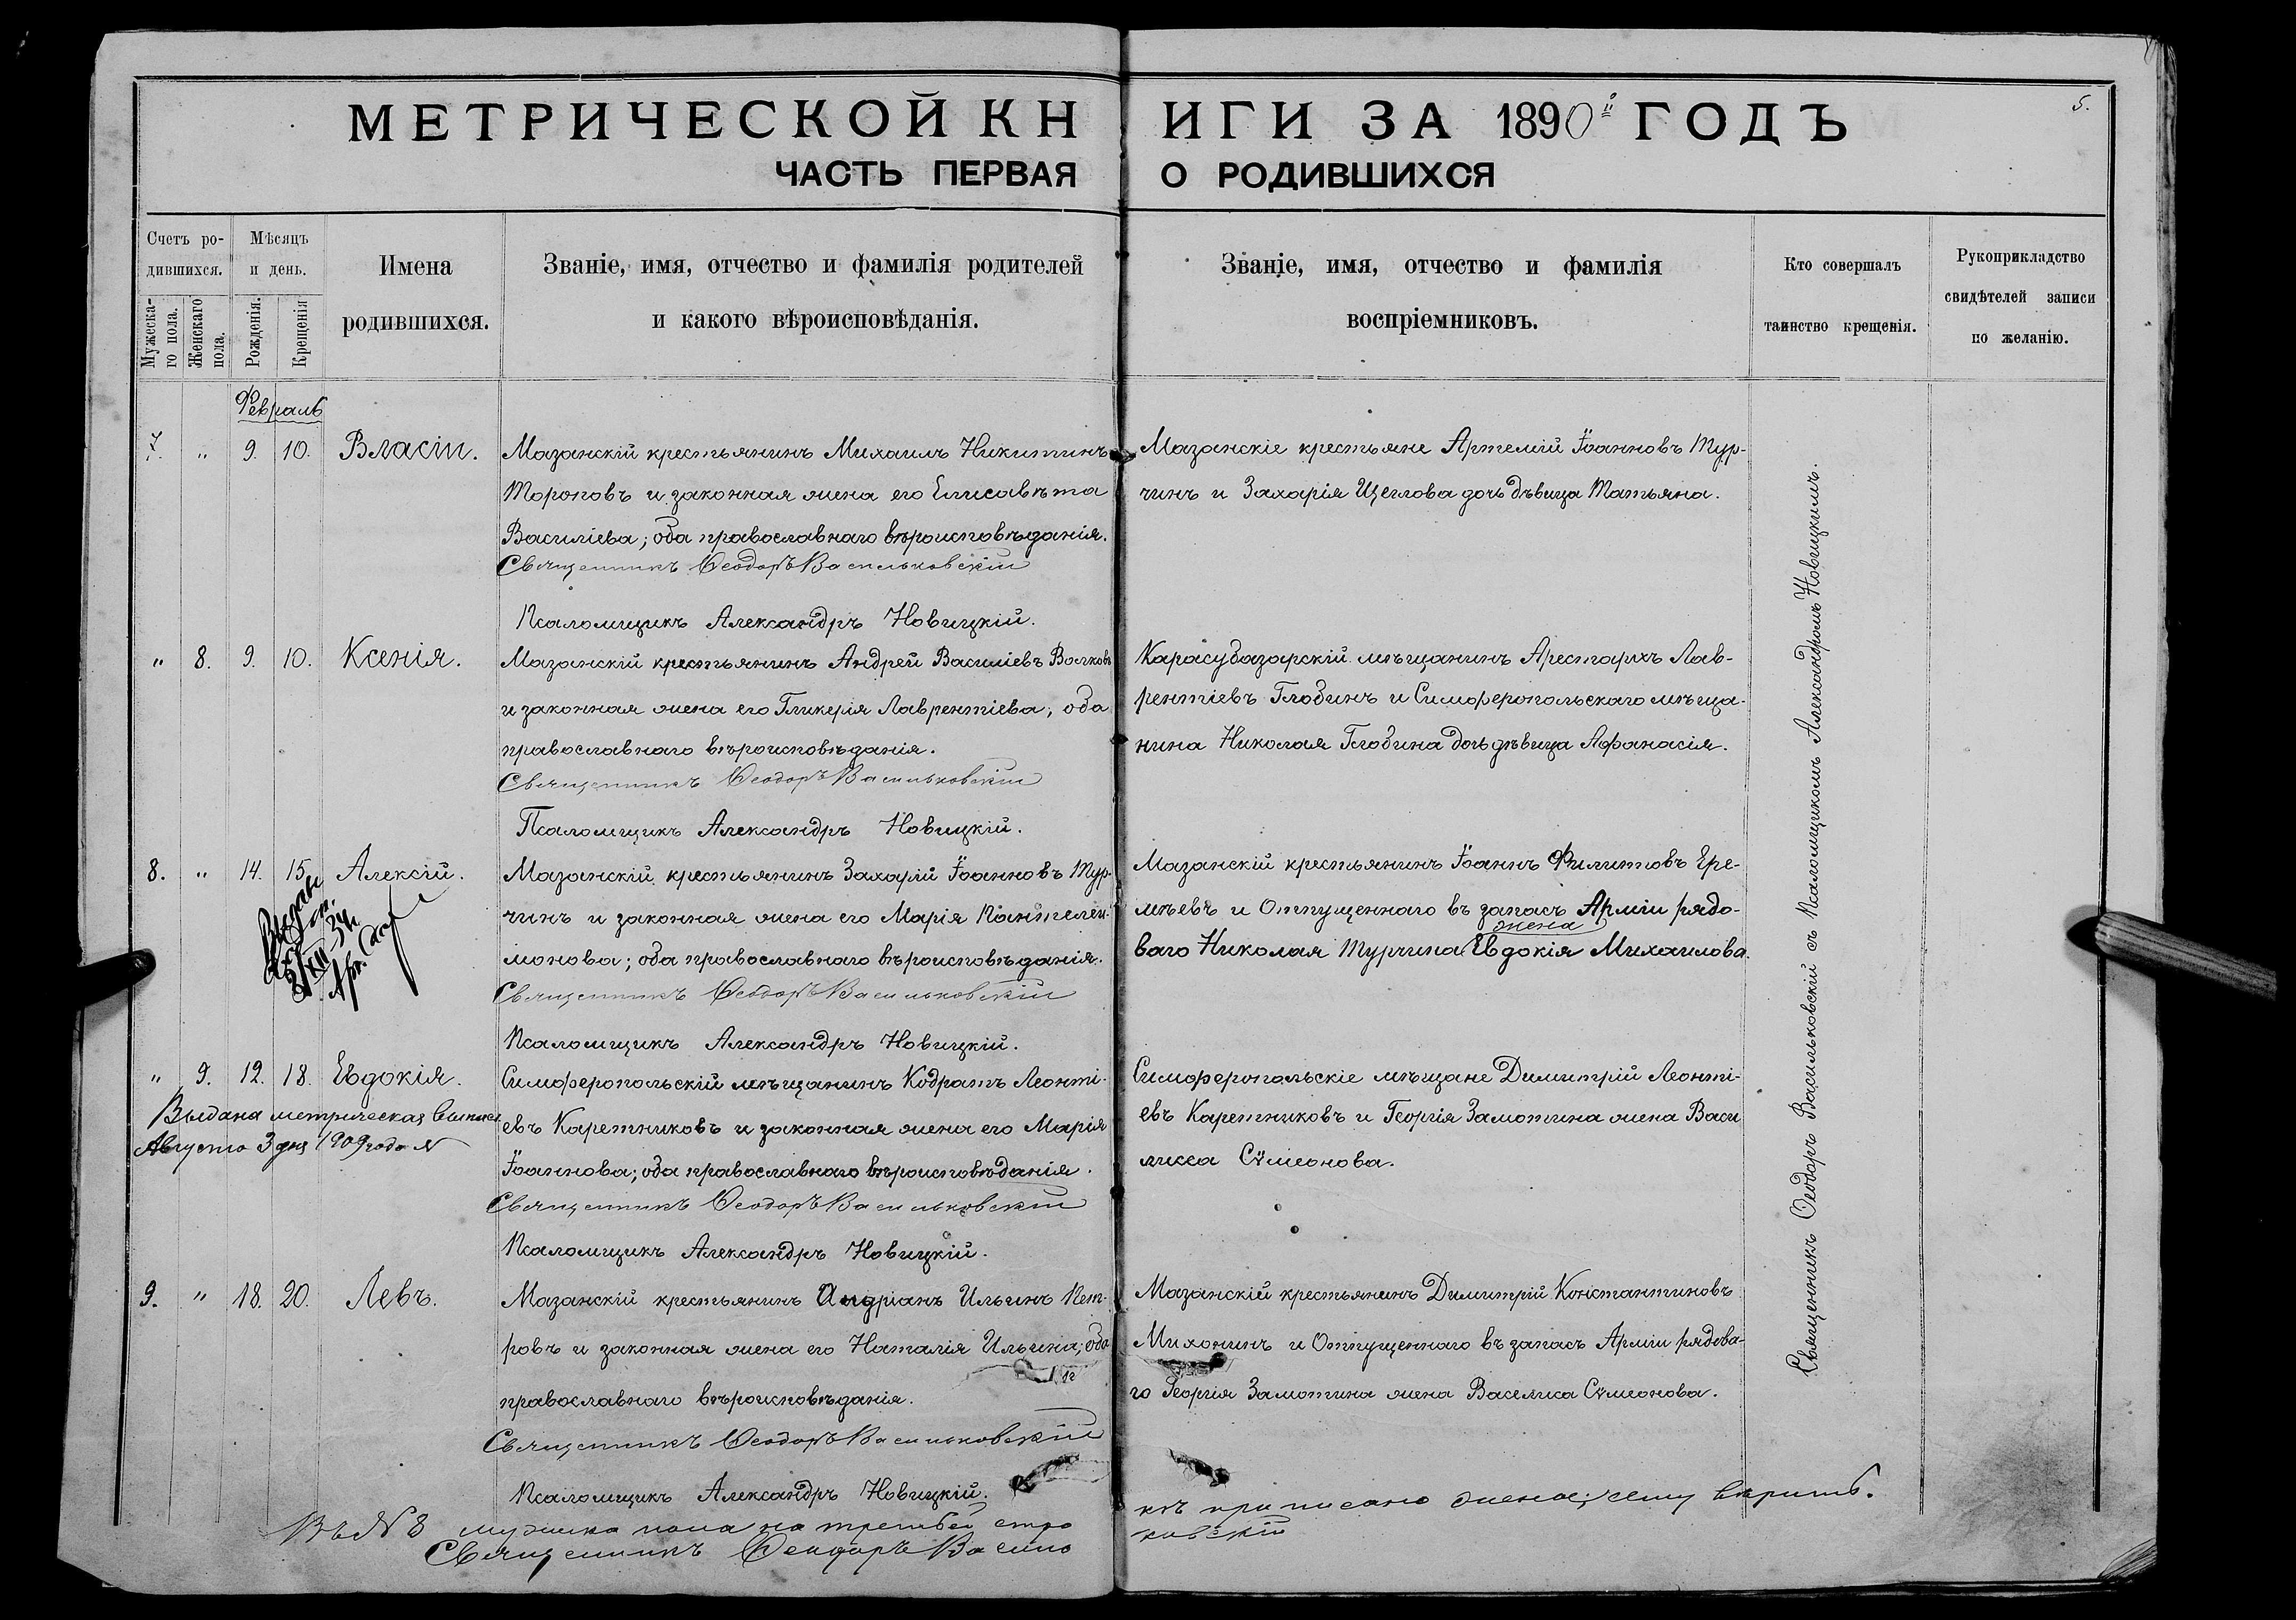 МЕТРИЧЕСКОЙ КНИГИ ЗА 1890й ГОДЪ
5.
ЧАСТЬ ПЕРВАЯ О РОДИВШИХСЯ
Счетъ ро-
дившихся.
Мужеска-
го пола.
Женскаго
пола.
Мѣсяцъ
и день.
Рожденія.
Крещенія
Имена
родившихся.
Званіе, имя, отчество и фамилія родителей
и какого вѣроисповѣданія.
Званіе, имя, отчество и фамилія
воспріемниковъ.
Кто совершалъ
таинство крещенія.
Рукоприкладство
свидѣтелей записи
по желанію.
Февраль
7. " 9. 10. Власій.
Мазанскій крестьянинъ Михаилъ Никитинъ
Тороповъ и законная жена его Елисавѣта
Василіева; оба православнаго вѣроисповѣданія.
Священникъ Ѳеодоръ Васильковскій
Псаломщикъ Александръ Новицкій.
Мазанскіе крестьяне Артемій Іоанновъ Тур-
чинъ и Захарія Щеглова дочь дѣвица Татьяна.
" 8. 9. 10. Ксенія.
Мазанскій крестьянинъ Андрей Василіевъ Волковъ
и законная жена его Гликерія Лаврентіева; оба
православнаго вѣроисповѣданія.
Священникъ Ѳеодоръ Васильковскій
Псаломщикъ Александръ Новицкій.
Карасубазарскій мѣщанинъ Арестархъ Лав-
рентіевъ Глобинъ и Симферопольскаго мѣща-
нина Николая Глобина дочь дѣвица Афанасія.
8. " 14. 15. Алексій.
Мазанскій крестьянинъ Захарій Іоанновъ Тур-
чинъ и законная жена его Марія Пантелеи-
монова; оба православнаго вѣроисповѣданія.
Священникъ Ѳеодоръ Васильковскій
Псаломщикъ Александръ Новицкій.
Мазанскій крестьянинъ Іоаннъ Филиповъ Ере-
мѣевъ и Отпущеннаго въ запасъ Арміи рядо-
жена
ваго Николая Турчина Евдокія Михаилова.
" 9. 12. 18. Евдокія.
Выдана метрическая выпись
Августа 3 дня 1909 года N
Симферопольскій мѣщанинъ Кодратъ Леонті-
евъ Каретниковъ и законная жена его Марія
Іоаннова; оба православнаго вѣроисповѣданія.
Священникъ Ѳеодоръ Васильковскій
Псаломщикъ Александръ Новицкій.
Симферопольскіе мѣщане Димитрій Леонті-
евъ Каретниковъ и Георгія Замотина жена Васи
лисса Сѵмеонова.
9. " 18. 20. Левъ.
Мазанскій крестьянинъ Андріанъ Ильинъ Пет-
ровъ и законная жена его Наталія Ильина; оба
православнаго вѣроисповѣданія.
Священникъ Ѳеодоръ Васильковскій
Псаломщикъ Александръ Новицкій.
Мазанскій крестьянинъ Димитрій Константиновъ
Михонинъ и Отпущеннаго въ запасъ Арміи рядова-
го Георгія Замотина жена Васелиса Сѵмеонова.
Священникъ Ѳеодоръ Васильковскій съ Псаломщикомъ Александромъ Новицкимъ.
Въ № 8 мужска пола на третьей строкѣ приписано жена; сему вѣрить.
Священникъ Ѳеодоръ Васильковскій